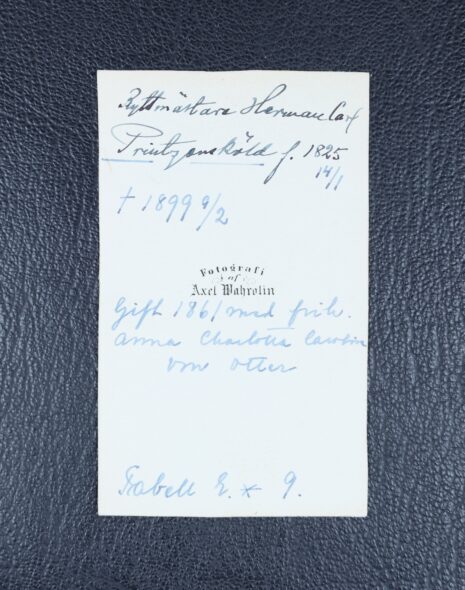 Ryttmästare Herman Carl
Printzensköld f. 1825
14/1
† 1899 9/2
Fotografi
af
Axel Wahrolin
Gift 1861 med frih.
Anna Charlotta Carolina
von Otter
Tabell E. * 9.